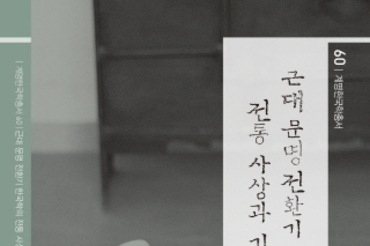 60 | 계명한국학총서
근대 문명 전환기
전통 사상과
| 계명한국학총서 60 | 근대 문명 전환기 한국학의 전통 사상